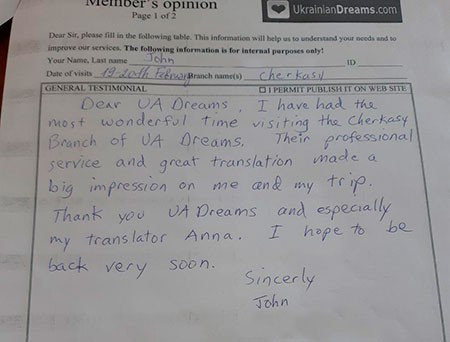 Member's opinion
Page 1 of 2
UkrainianDreams.com
Dear Sir, please fill in the following table. This information will help us to understand your needs and to
improve our services. The following information is for internal purposes only!
Your Name, Last name John ID
Date of visits 19-20th February Branch name(s) Cherkasy
GENERAL TESTIMONIAL ☐ I PERMIT PUBLISH IT ON WEB SITE
Dear UA Dreams, I have had the
most wonderful time visiting the Cherkasy
Branch of UA Dreams. Their professional
service and great translation made a
big impression on me and my trip.
Thank you UA Dreams and especially
my translator Anna. I hope to be
back very soon.
Sincerly
John